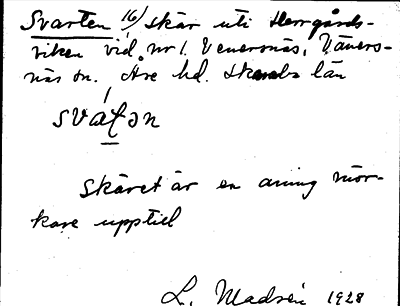 Svarten 16/ skär uti Herrgårds-
viken vid nr 1. Venersnäs, Väners-
näs sn. Åse hd. Skarab. län
svátən
Skäret är en aning mör-
kare upptill
L. Madsén 1928